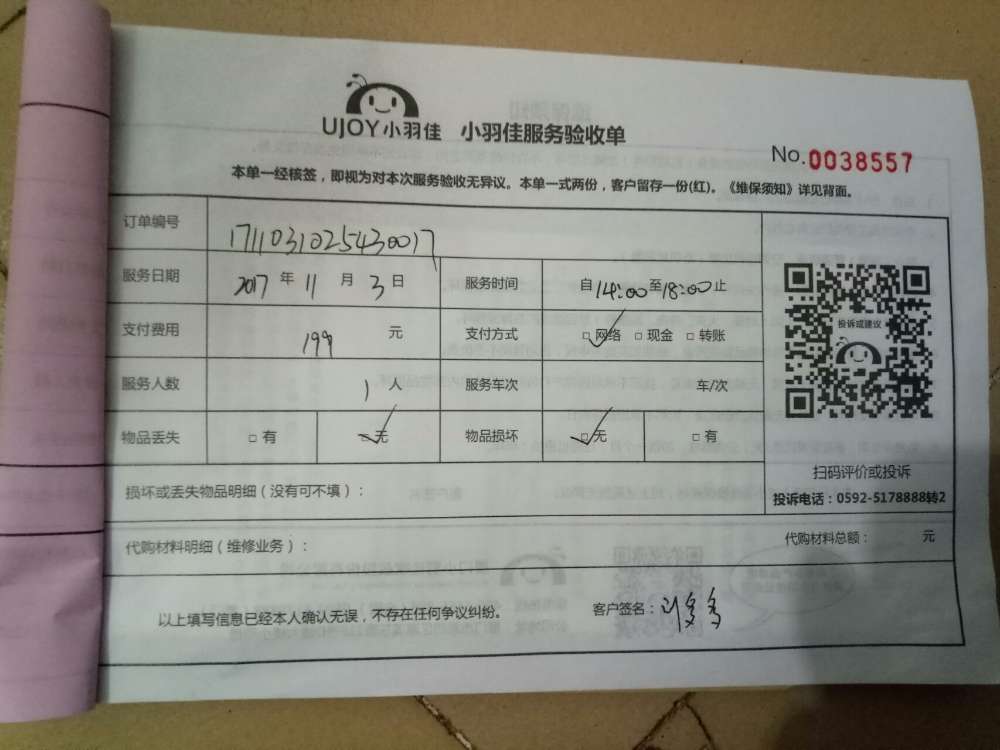 UJOY小羽佳 小羽佳服务验收单
No.0038557
本单一经核签，即视为对本次服务验收无异议。本单一式两份，客户留存一份(红)。《维保须知》详见背面。
订单编号 1711031025430017
服务日期 2017 年 11 月 3 日 服务时间 自 14:00 至 18:00 止
支付费用 199 元 支付方式 □网络 □现金 □转账
投诉或建议
服务人数 1 人 服务车次 车/次
物品丢失 □有 □无 物品损坏 □无 □有
扫码评价或投诉
损坏或丢失物品明细（没有可不填）：
投诉电话：0592-5178888转2
代购材料明细（维修业务）： 代购材料总额： 元
以上填写信息已经本人确认无误，不存在任何争议纠纷。 客户签名：刘多多